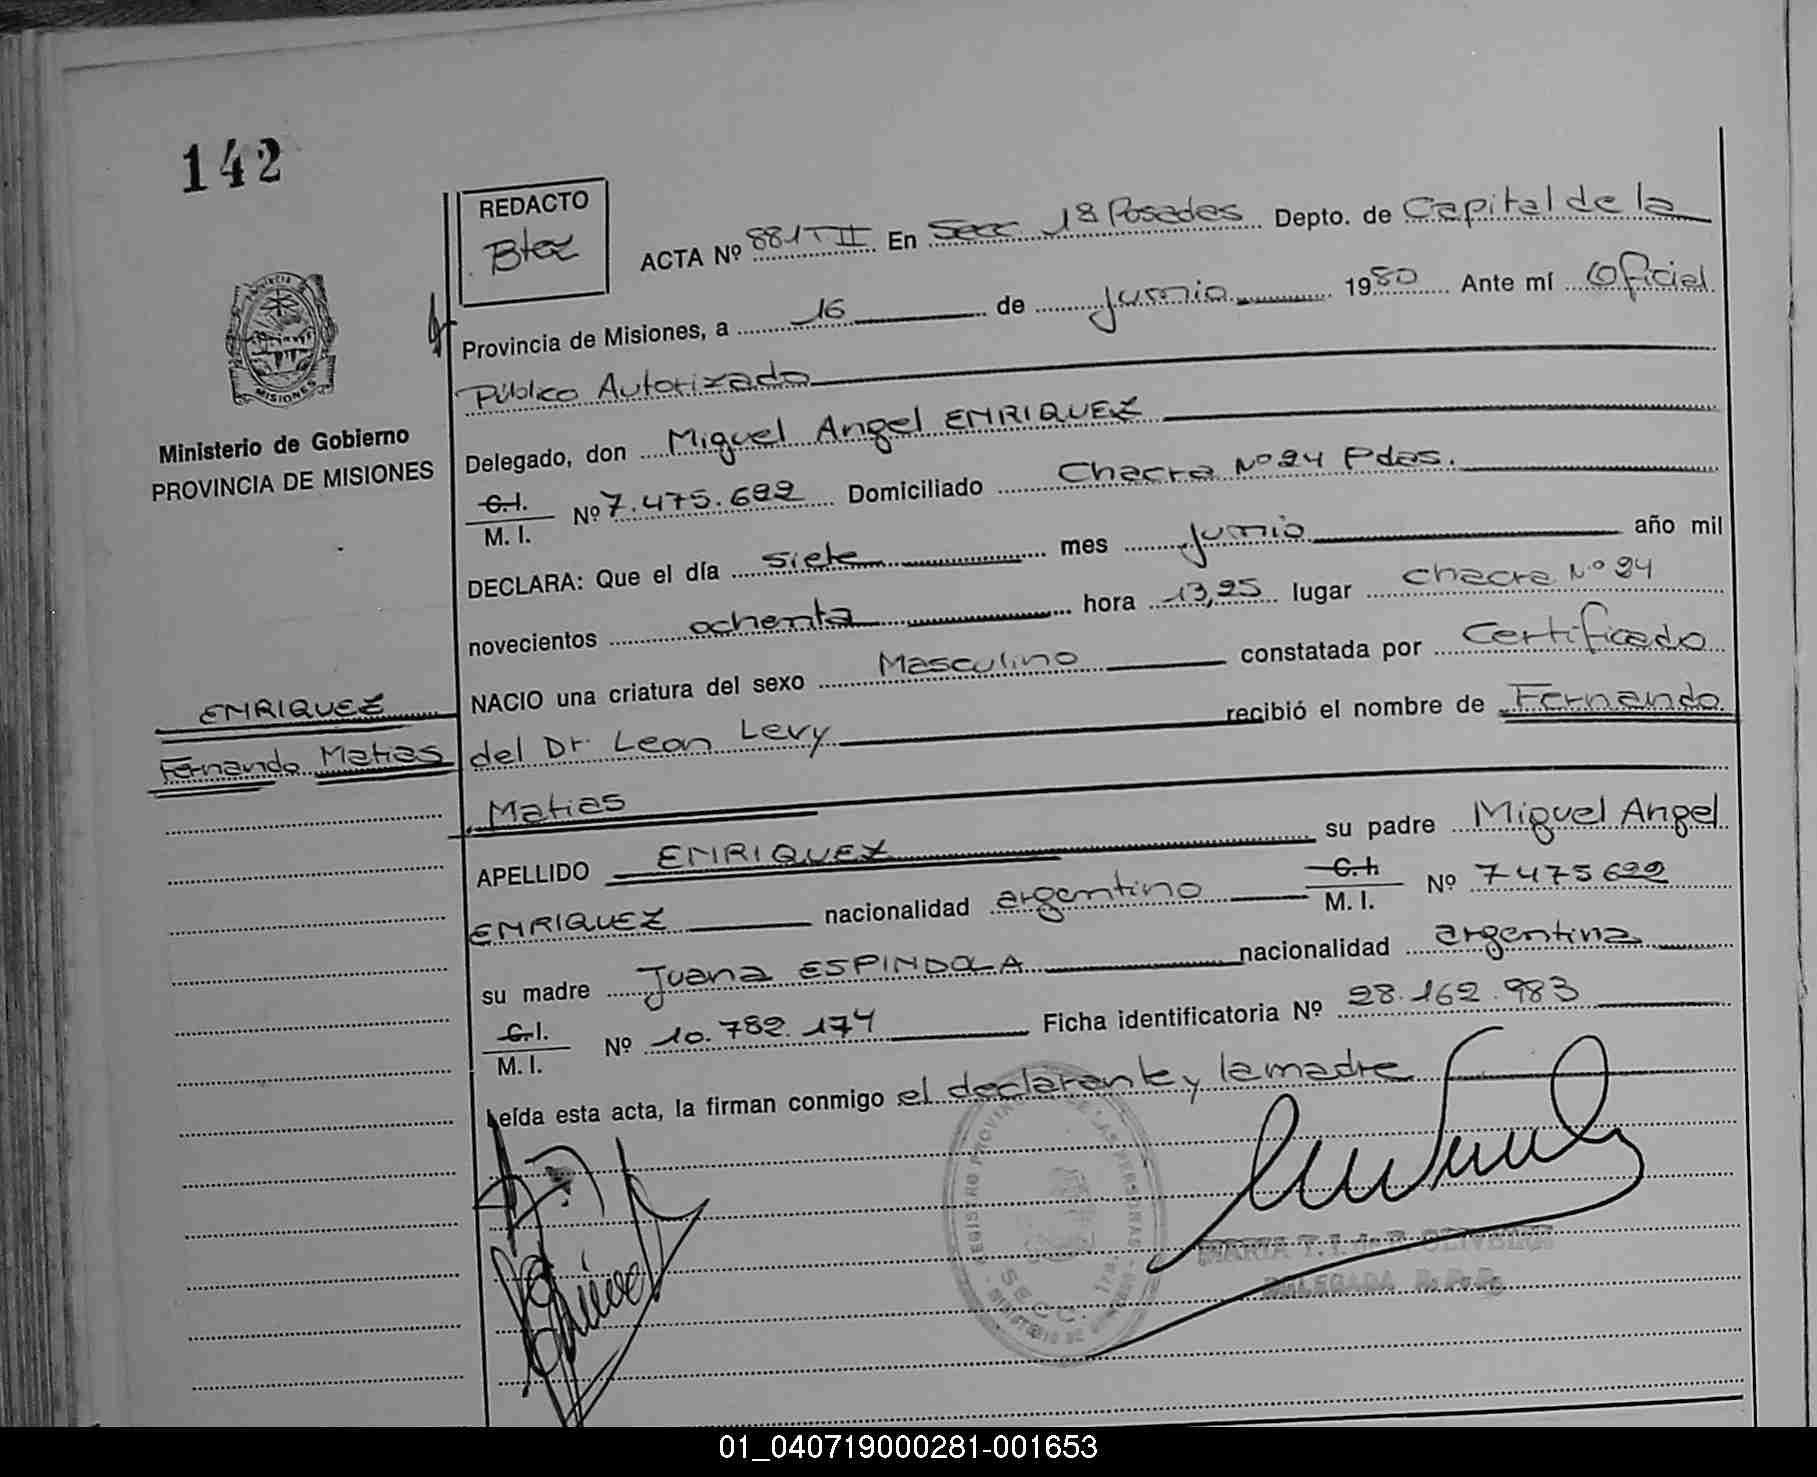 142
REDACTO
Btez
ACTA Nº 881 T II En Secc 1ª Posadas Depto. de Capital de la
Provincia de Misiones, a 16 de junio 1980 Ante mí Oficial
Público Autorizado
MISIONES
Ministerio de Gobierno
PROVINCIA DE MISIONES
Delegado, don Miguel Angel ENRIQUEZ
C.I.
M. I. Nº 7.475.622 Domiciliado Chacra Nº 24 Pdas.
DECLARA: Que el día siete mes junio año mil
novecientos ochenta hora 13,25 lugar chacra Nº 24
NACIO una criatura del sexo Masculino constatada por Certificado
ENRIQUEZ
Fernando Matias
del Dr. Leon Levy recibió el nombre de Fernando
Matias
APELLIDO ENRIQUEZ su padre Miguel Angel
ENRIQUEZ nacionalidad argentino C.I. M. I. Nº 7475622
su madre Juana ESPINDOLA nacionalidad argentina
C.I.
M. I. Nº 10.782.174 Ficha identificatoria Nº 28.162.983
Leída esta acta, la firman conmigo el declarante y la madre
REGISTRO PROVINCIAL DE LAS PERSONAS
SECC. 1ra.
MARIA T. I. de OLIVEIRA
DELEGADA R. P. P.
01_040719000281-001653